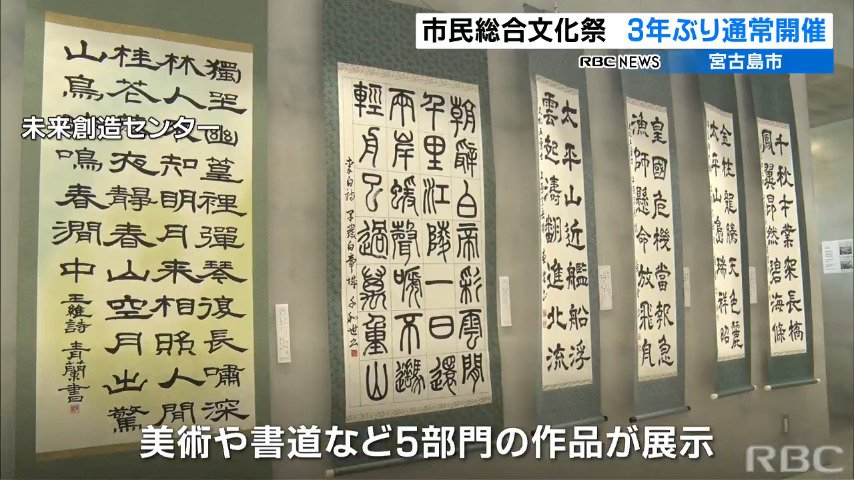 市民総合文化祭 3年ぶり通常開催
RBC NEWS 宮古島市
未来創造センター
獨坐幽篁裡彈琴復長嘯深
林人知明月来相照人閒
桂花夜靜春山空月出驚
山鳥鳴春澗中 王維詩 青蘭書
朝辭白帝彩雲間
千里江陵一日還
兩岸猨聲嗁不盡
輕舟已過萬重山
李白詩 早發白帝城
太平山近艦船浮
雲起濤翻進北流
皇國危機當報急
漁師懸命放飛舟
金柱龍騰天色麗
太平山島瑞祥昭
千秋業架長橋
鳳翼昂然碧海條
美術や書道など5部門の作品が展示
RBC